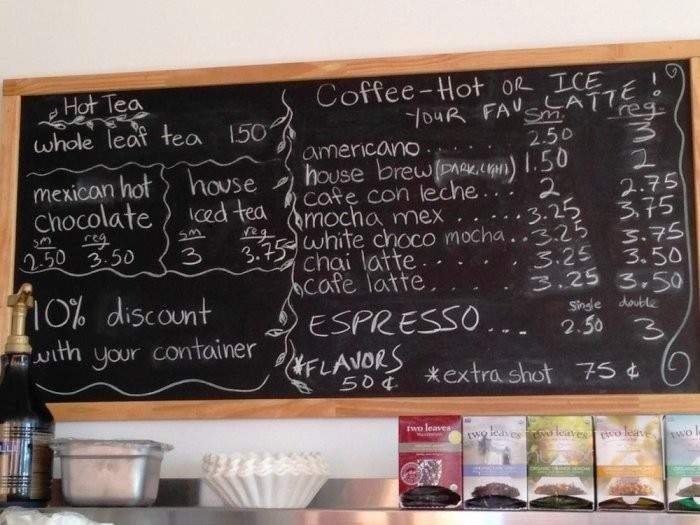 Hot Tea
whole leaf tea 1.50
mexican hot
chocolate
sm reg
2.50 3.50
house
iced tea
sm reg
3 3.75
10% discount
with your container
Coffee-Hot OR ICE
YOUR FAV LATTE!
sm. reg.
americano..... 2.50 3
house brew (DARK, LIGHT) 1.50 2
cafe con leche... 2 2.75
mocha mex ...... 3.25 3.75
white choco mocha.. 3.25 3.75
chai latte...... 3.25 3.50
cafe latte...... 3.25 3.50
single double
ESPRESSO... 2.50 3
*FLAVORS
50¢
*extra shot 75¢
two leaves
two leaves
two leaves
two leaves
two l